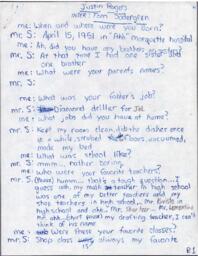 Justin Rogers
me: When and where were you born?
Mr. S: April 15, 1951 in Ahh Marquette hospital
me: Ah, did you have any brothers or sisters?
Mr. S: At that time I had one sister and
one brother
me: What were your parents names?
Mr. S:
me: What was your father's job?
Mr. S: Diamond driller for
me: What jobs did you have at home?
Mr. S: Kept my room clean, did the dishes once
in a while, scrubed floors, vacuumed,
made my bed
me: What was school like?
Mr. S: mmm... rather boring
me: Who were your favorite teachers?
Mr. S: (Pause) hummm... that's a tough question... I
guess ahh, my math teacher in high school
was one of my better teachers and my
shop teachers in high school... Mr.
high school and ahh.. Mr.
ahh.. (short pause) my drafting teacher, I can't
think of his name
me: What were your favorite classes?
Mr. S: Shop class always my favorite